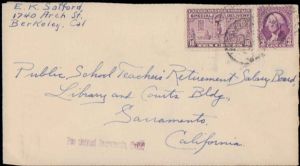 E. K. Safford,
1740 Arch St.
Berkeley, Cal
SPECIAL DELIVERY
Public School Teachers Retirement Salary Board
Library and Courts Bldg,
Sacramento
California.